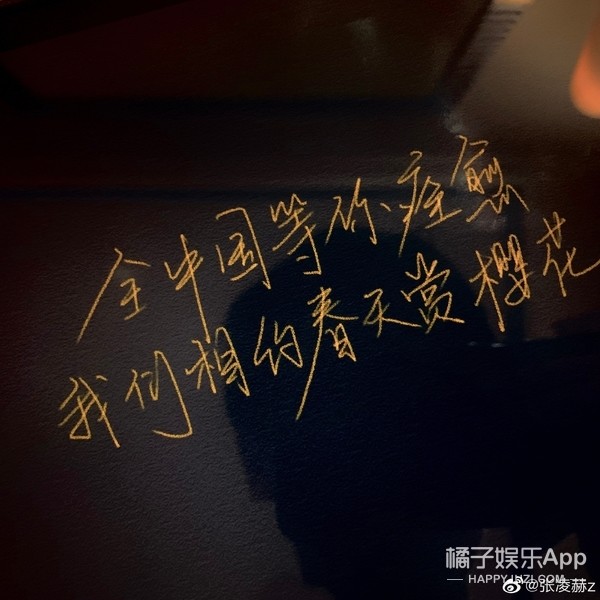 全中国等你痊愈
我们相约春天赏樱花
橘子娱乐App
HAPPYJUZI.COM
@张凌赫z